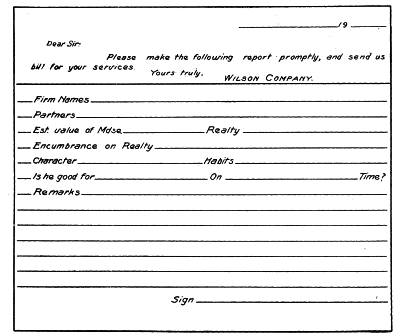 19
Dear Sir-
Please make the following report promptly, and send us
bill for your services.
Yours truly,
WILSON COMPANY.
Firm Names
Partners
Est. value of Mdse. Realty
Encumbrance on Realty
Character Habits
Is he good for On Time?
Remarks
Sign